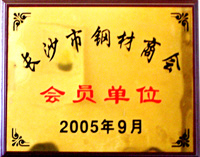 长沙市钢材商会
会员单位
2005年9月